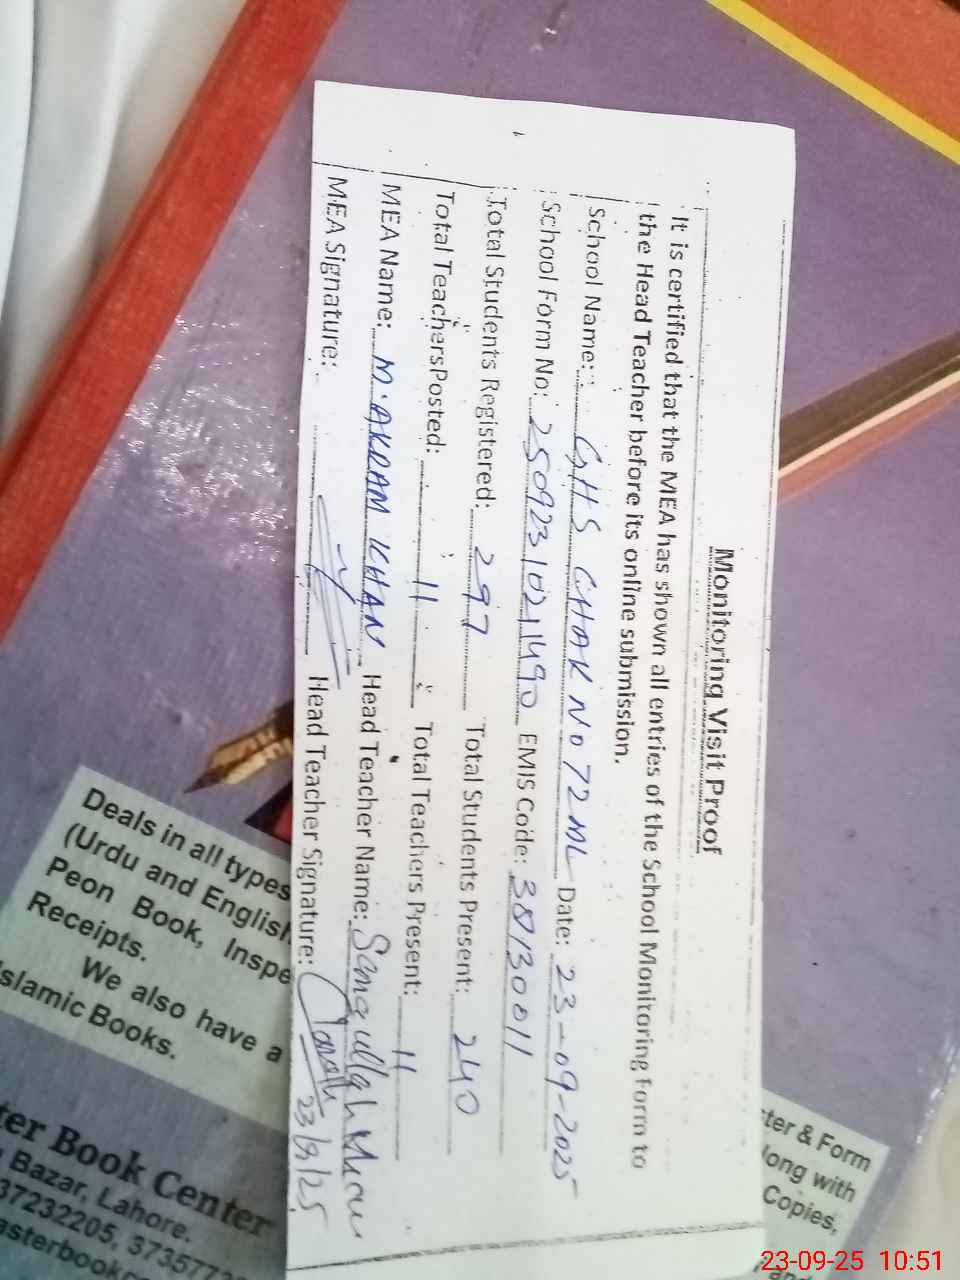 Monitoring Visit Proof
It is certified that the MEA has shown all entries of the School Monitoring Form to
the Head Teacher before its online submission.
School Name: GHS CHAK NO 72 ML Date: 23-09-2025
School Form No: 2509231021490 EMIS Code: 38130011
Total Students Registered: 297 Total Students Present: 240
Total Teachers Posted: 11 Total Teachers Present: 11
MEA Name: M. AKRAM KHAN Head Teacher Name: Samiullah Khan
MEA Signature: Head Teacher Signature: 23/9/25
Deals in all types
(Urdu and English
Peon Book, Inspe
Receipts.
We also have a
Islamic Books.
ter Book Center
Bazar, Lahore.
37232205, 3735773
asterbook
ter & Form
long with
Copies,
and
23-09-25 10:51